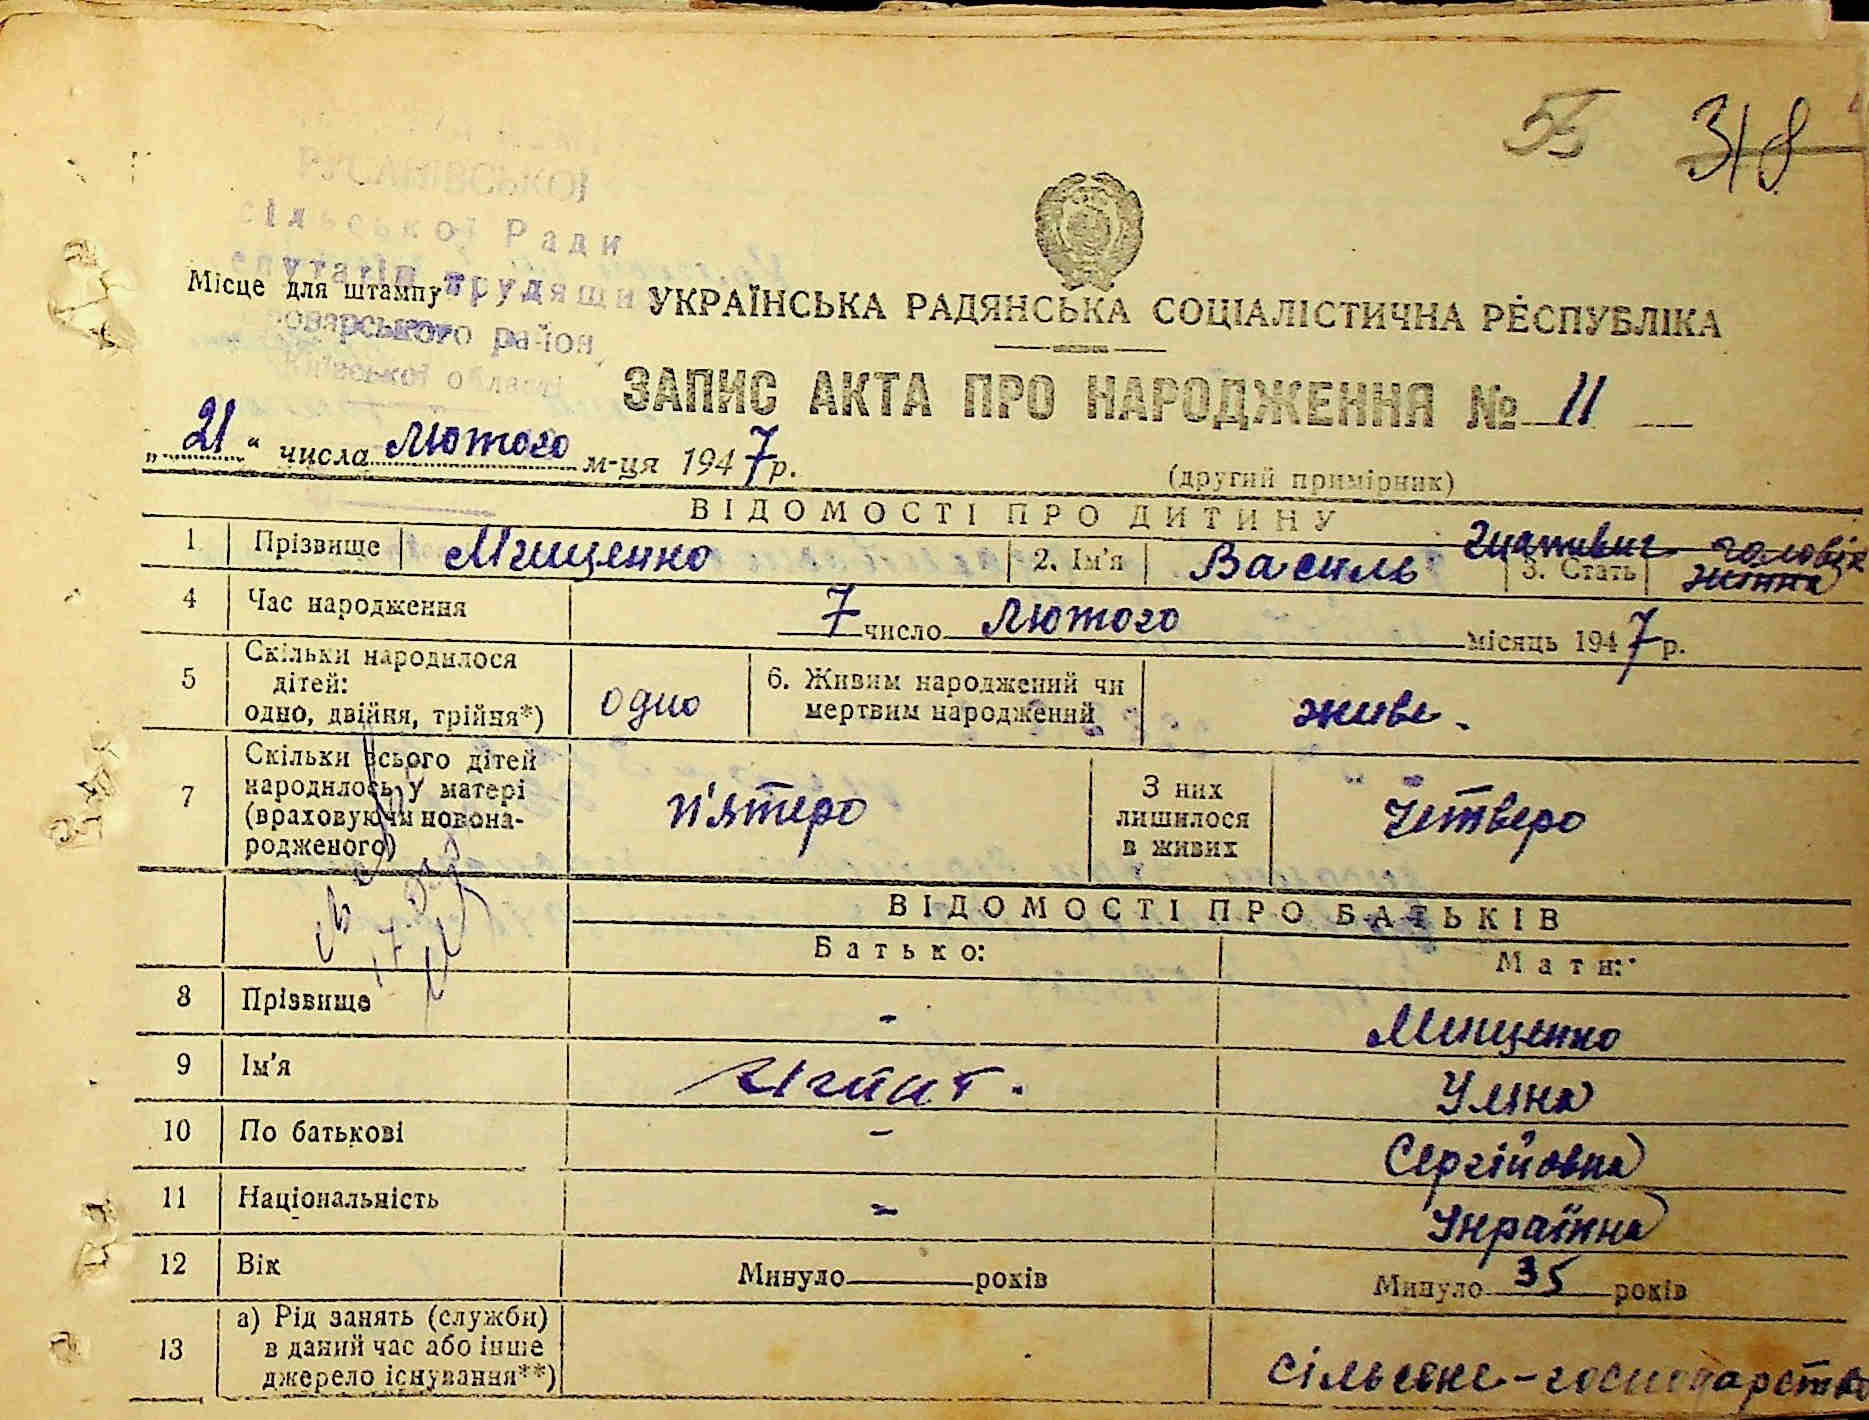 55 318
РУСАНІВСЬКОЇ
сільської Ради
трудящи
Місце для штампу
УКРАЇНСЬКА РАДЯНСЬКА СОЦІАЛІСТИЧНА РЕСПУБЛІКА
район
Київської області
ЗАПИС АКТА ПРО НАРОДЖЕННЯ № 11
„21“ числа Лютого м-ця 1947 р.
(другий примірник)
ВІДОМОСТІ ПРО ДИТИНУ
1 Прізвище Міщенко 2. Ім'я Василь Гнатович 3. Стать чоловік
4 Час народження 7 число Лютого місяць 1947 р.
5 Скільки народилося дітей: одно, двійня, трійня*) одно 6. Живим народжений чи мертвим народжений живе.
7 Скільки всього дітей народилось у матері (враховуючи новонародженого) п'ятеро З них лишилося в живих Четверо
ВІДОМОСТІ ПРО БАТЬКІВ
Батько: Мати:
8 Прізвище - Міщенко
9 Ім'я Ігнат. Уляна
10 По батькові - Сергійовна
11 Національність - Українка
12 Вік Минуло років Минуло 35 років
13 а) Рід занять (служби) в даний час або інше джерело існування**) сільське-господарство